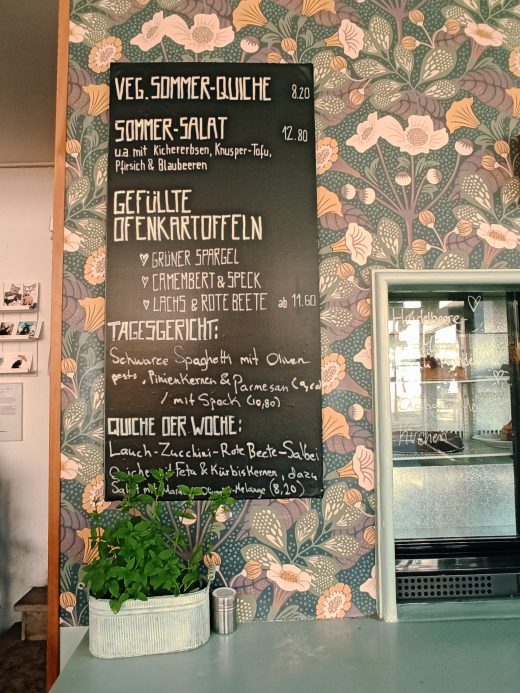 VEG. SOMMER-QUICHE 8.20
SOMMER-SALAT 12.80
u.a mit Kichererbsen, Knusper-Tofu,
Pfirsich & Blaubeeren
GEFÜLLTE
OFENKARTOFFELN
GRÜNER SPARGEL
CAMEMBERT & SPECK
LACHS & ROTE BEETE ab 11.60
TAGESGERICHT:
Schwarze Spaghetti mit Oliven
pesto, Pinienkernen & Parmesan
/ mit Speck (10,80)
QUICHE DER WOCHE:
Lauch-Zucchini-Rote Beete-Salbei
Quiche mit Feta & Kürbiskernen, dazu
Salat mit Melange (8,20)
Heidelbeere
Kuchen